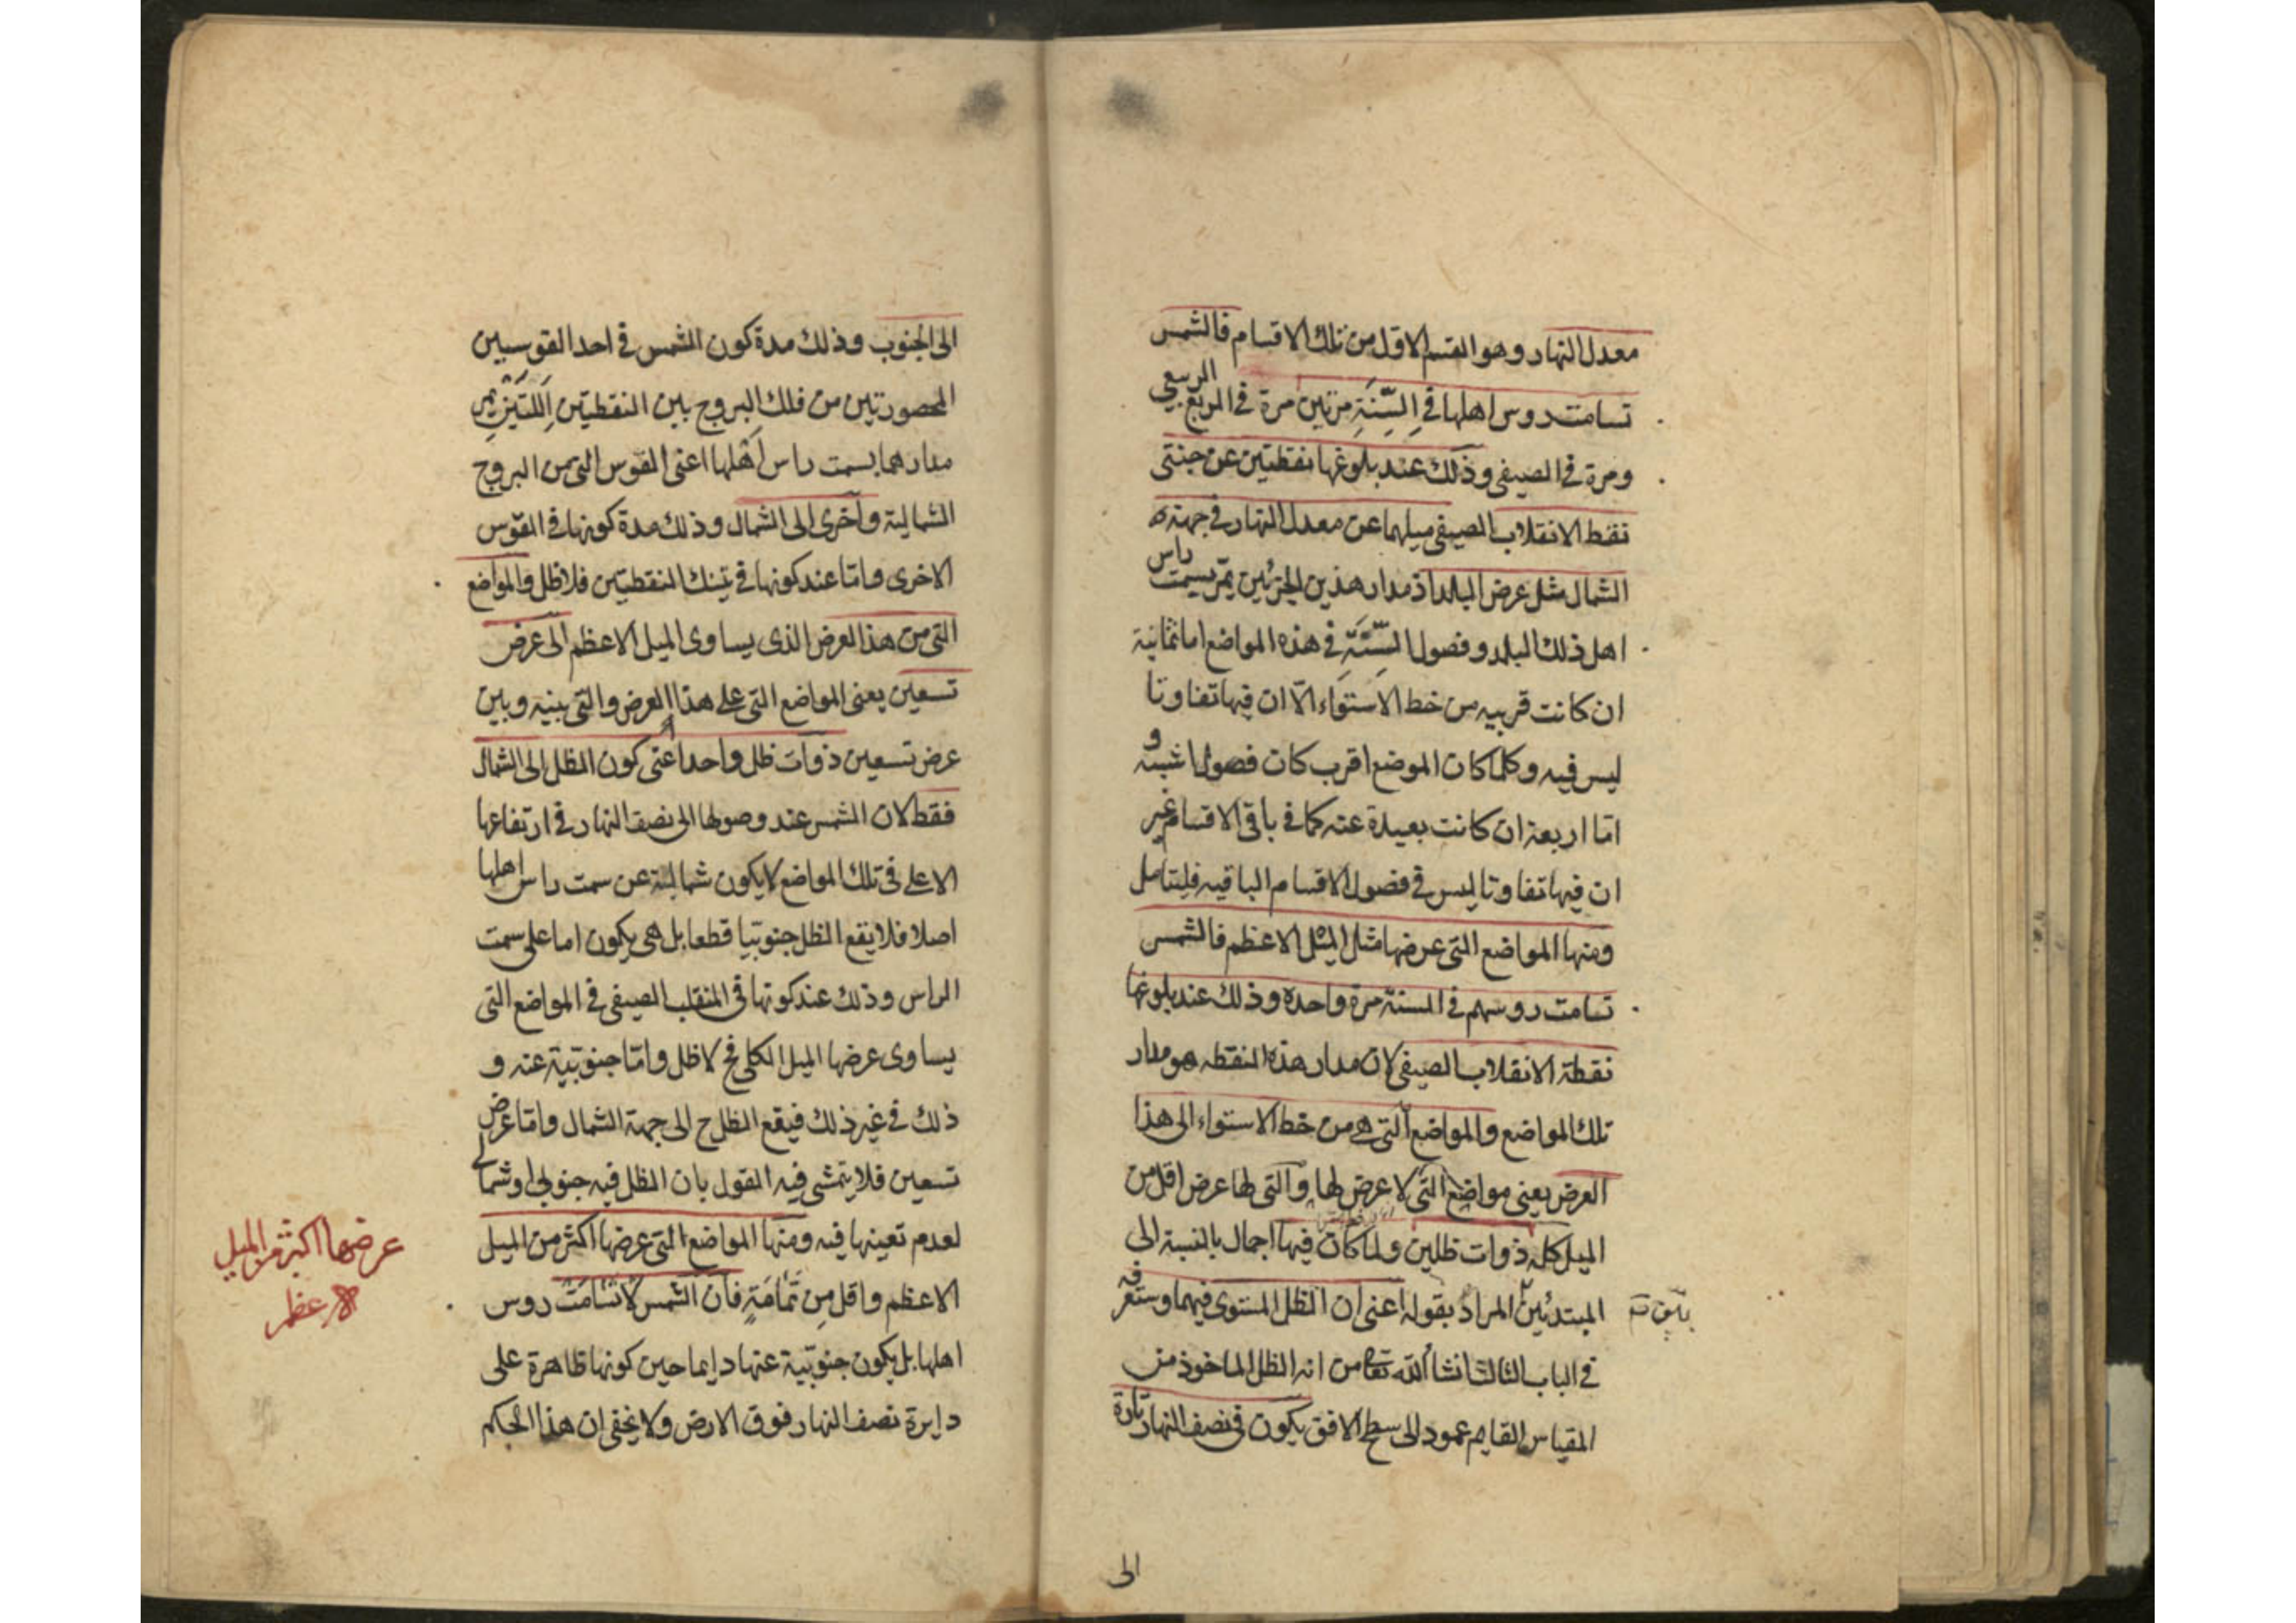 معدل النهار وهو القسم الاول من تلك الاقسام فالشمس
تسامت روس اهلها في السَّنَةِ مرتين مرة في الربع الربيعي
ومرة في الصيفي وذلك عند بلوغها نقطتين عن جنبتي
نقط الانقلاب الصيفي ميلهما عن معدل النهار في جهة
الشمال مثل عرض البلد اذ مدار هذين الجزئين يمر بسمت راس
اهل ذلك البلد وفصول السَّنَة في هذه المواضع اما ثمانية
ان كانت قريبه من خط الاستواء الّا ان فيها تفاوتا
ليس فيه وكلما كان الموضع اقرب كان فصوله اشبه
امّا اربعة ان كانت بعيدة عنه كما في باقي الاقسام غير
ان فيها تفاوتا ليس في فصول الاقسام الباقيه فليتامل
ومنها المواضع التي عرضها مثل الميل الاعظم فالشمس
تسامت روسهم في السنة مرة واحدة وذلك عند بلوغها
نقطة الانقلاب الصيفي لان مدار هذه النقطه هو مدار
تلك المواضع والمواضع التي هي من خط الاستواء الى هذا
العرض يعني مواضع التي لا عرض لها والتي لها عرض اقل من
الميل كله ذوات ظلين ولما كان فيها اجمال بالنسبة الى
المبتدئين المراد بقوله اعني ان الظل المستوي فيهما وستعرفه
في الباب الثالث انشا الله تعالى من انه الظل الماخوذ من
المقياس القايم عمود الى سطح الافق يكون في نصف النهار تارة
الى
الى الجنوب وذلك مدة كون الشمس في احد القوسين
المحصورتين من فلك البروج بين النقطتين اللَّتَيْن يمر
مدارهما بسمت راس اهلها اعني القوس التي من البروج
الشمالية واخرى الى الشمال وذلك مدة كونها في القوس
الاخرى وامّا عند كونها في تينك النقطتين فلا ظل والمواضع
التي من هذا العرض الذي يساوي الميل الاعظم الى عرض
تسعين يعني المواضع التي على هذا العرض والتي بينه وبين
عرض تسعين ذوات ظل واحد اعني كون الظل الى الشمال
فقط لان الشمس عند وصولها الى نصف النهار في ارتفاعها
الاعلى في تلك المواضع لا يكون شمالية عن سمت راس اهلها
اصلا فلا يقع الظل جنوبيا قطعا بل هي يكون اما على سمت
الراس وذلك عند كونها في المنقلب الصيفي في المواضع التي
يساوي عرضها الميل الكلي فح لا ظل وامّا جنوبيّة عنه و
ذلك في غير ذلك فيقع الظل ح الى جهة الشمال وامّا عرض
تسعين فلا يتمشى فيه القول بان الظل فيه جنوبي او شمالي
لعدم تعينها فيه ومنها المواضع التي عرضها اكثر من الميل
الاعظم واقل مِن تمَامَهِ فان الشمس لا تسَامَت روس
اهلها بل يكون جنوبّية عنها دايما حين كونها ظاهرة على
دايرة نصف النهار فوق الارض ولا يخفى ان هذا الحكم
عرضها اكثر من الميل
الاعظم